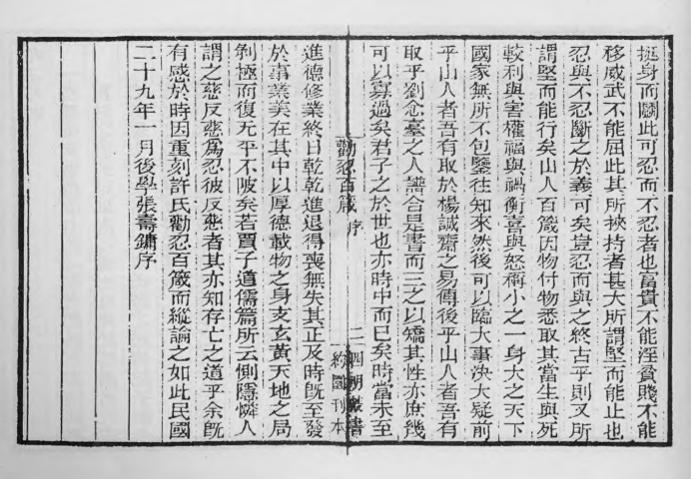 挺身而鬭此可忍而不忍者也富貴不能淫貧賤不能
移威武不能屈此其所挾持者甚大所謂堅而能止也
忍與不忍斷之於義可矣豈忍而與之終古乎則又所
謂堅而能行矣山人百箴因物付物悉取其當生與死
較利與害權福與禍衡喜與怒稱小之一身大之天下
國家無所不包鑒往知來然後可以臨大事決大疑前
乎山人者吾有取於楊誠齋之易傳後乎山人者吾有
取乎劉念臺之人譜合是書而三之以矯其性亦庶幾
可以寡過矣君子之於世也亦時中而已矣時當未至
勸忍百箴 序 二 四明叢書
約園刊本
進德修業終日乾乾進退得喪無失其正及時旣至發
於事業美在其中以厚德載物之身支玄黃天地之局
剝極而復无平不陂矣若賈子道儒篇所云惻隱憐人
謂之慈反慈爲忍彼反慈者其亦知存亡之道乎余旣
有感於時因重刻許氏勸忍百箴而縱論之如此民國
二十九年一月後學張壽鏞序